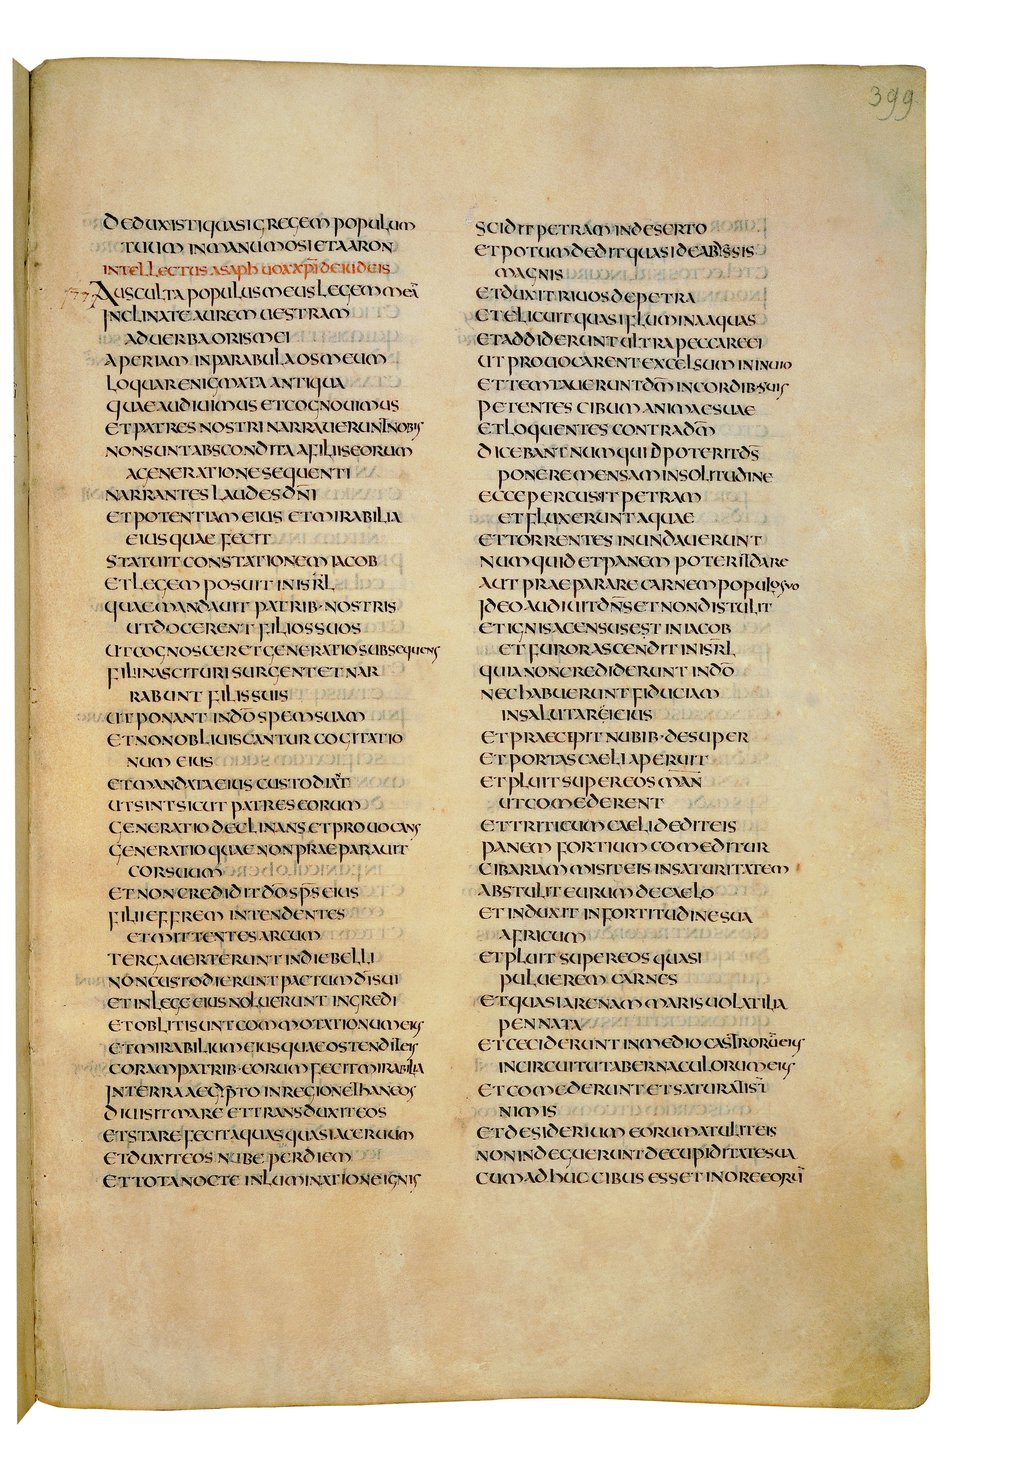 399
DEDUXISTI QUASI GREGEM POPULUM
TUUM IN MANU MOSI ET AARON
INTELLECTUS ASAPH UOX XPI DE IUDEIS
77 AUSCULTA POPULUS MEUS LEGEM MEĀ
INCLINATE AUREM UESTRAM
AD UERBA ORIS MEI
APERIAM IN PARABULA OS MEUM
LOQUAR ENIGMATA ANTIQUA
QUAE AUDIUIMUS ET COGNOUIMUS
ET PATRES NOSTRI NARRAUERUNT NOBIS
NON SUNT ABSCONDITA A FILIIS EORUM
A GENERATIONE SEQUENTI
NARRANTES LAUDES DN̄I
ET POTENTIAM EIUS ET MIRABILIA
EIUS QUAE FECIT
STATUIT CONSTATIONEM IACOB
ET LEGEM POSUIT IN ISR̄L
QUAE MANDAUIT PATRIB· NOSTRIS
UT DOCERENT FILIOS SUOS
UT COGNOSCERET GENERATIO SUBSEQUENS
FILI NASCITURI SURGENT ET NAR
RABUNT FILIS SUIS
UT PONANT IN DŌ SPEM SUAM
ET NON OBLIUISCANTUR COGITATIO
NUM EIUS
ET MANDATA EIUS CUSTODIAT
UT SINT SICUT PATRES EORUM
GENERATIO DECLINANS ET PROUOCANS
GENERATIO QUAE NON PRAEPARAUIT
COR SUUM
ET NON CREDIDIT DŌ SP̄S EIUS
FILII EFFREM INTENDENTES
ET MITTENTES ARCUM
TERGA UERTERUNT IN DIE BELLI
NON CUSTODIERUNT PACTUM DĪ SUI
ET IN LEGE EIUS NOLUERUNT INGREDI
ET OBLITI SUNT COMMOTATIONUM EIUS
ET MIRABILIUM EIUS QUAE OSTENDIT EIS
CORAM PATRIB· EORUM FECIT MIRABILIA
IN TERRA AEGYPTO IN REGIONE THANEOS
DIUISIT MARE ET TRANSDUXIT EOS
ET STARE FECIT AQUAS QUASI ACERUUM
ET DUXIT EOS NUBE PER DIEM
ET TOTA NOCTE IN LUMINATIONE IGNIS
SCIDIT PETRAM IN DESERTO
ET POTUM DEDIT QUASI DE ABISSIS
MAGNIS
ET DUXIT RIUOS DE PETRA
ET ELICUIT QUASI FLUMINA AQUAS
ET ADDIDERUNT ULTRA PECCARE EI
UT PROUOCARENT EXCELSUM IN INUIO
ET TEMTAUERUNT DM̄ IN CORDIB· SUIS
PETENTES CIBUM ANIMAE SUAE
ET LOQUENTES CONTRA DM̄
DICEBANT NUMQUID POTERIT DS̄
PONERE MENSAM IN SOLITUDINE
ECCE PERCUSSIT PETRAM
ET FLUXERUNT AQUAE
ET TORRENTES INUNDAUERUNT
NUMQUID ET PANEM POTERIT DARE
AUT PRAEPARARE CARNEM POPULO SUO
IDEO AUDIUIT DN̄S ET NON DISTULIT
ET IGNIS ACENSUS EST IN IACOB
ET FUROR ASCENDIT IN ISR̄L
QUIA NON CREDIDERUNT IN DŌ
NEC HABUERUNT FIDUCIAM
IN SALUTARE EIUS
ET PRAECIPIT NUBIB· DESUPER
ET PORTAS CAELI APERUIT
ET PLUIT SUPER EOS MAN
UT COMEDERENT
ET TRITICUM CAELI DEDIT EIS
PANEM FORTIUM COMEDIT UIR
CIBARIAM MISIT EIS IN SATURITATEM
ABSTULIT EURUM DE CAELO
ET INDUXIT IN FORTITUDINE SUA
AFRICUM
ET PLUIT SUPER EOS QUASI
PULUEREM CARNES
ET QUASI ARENAM MARIS UOLATILIA
PENNATA
ET CECIDERUNT IN MEDIO CASTRORŪ EIUS
IN CIRCUITU TABERNACULORUM EIUS
ET COMEDERUNT ET SATURATI ST̄
NIMIS
ET DESIDERIUM EORUM ATULIT EIS
NON INDEGUERUNT DE CUPIDITATE SUA
CUM ADHUC CIBUS ESSET IN ORE EORŪ